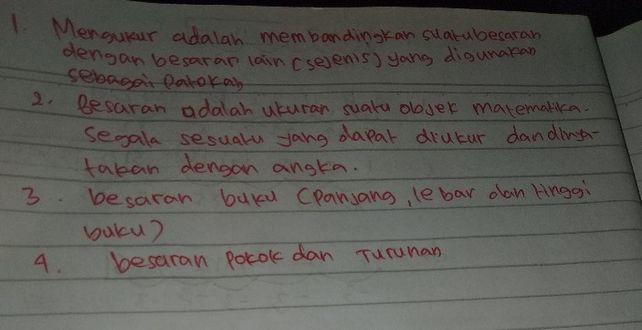 1. Mengukur adalah membandingkan suatu besaran
dengan besaran lain (sejenis) yang digunakan
sebagai Patokan
2. Besaran adalah ukuran suatu objek matematika.
Segala sesuatu yang dapat diukur dan dinya-
takan dengan angka.
3. besaran buku (Panjang, lebar dan tinggi
buku)
4. besaran Pokok dan Turunan